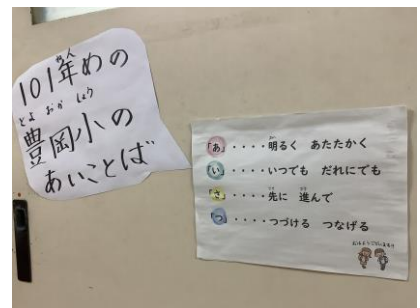 101年めの
豊岡小の
あいことば
「あ」・・・・明るく あたたかく
「い」・・・・いつでも だれにでも
「さ」・・・・先に 進んで
「つ」・・・・つづける つなげる